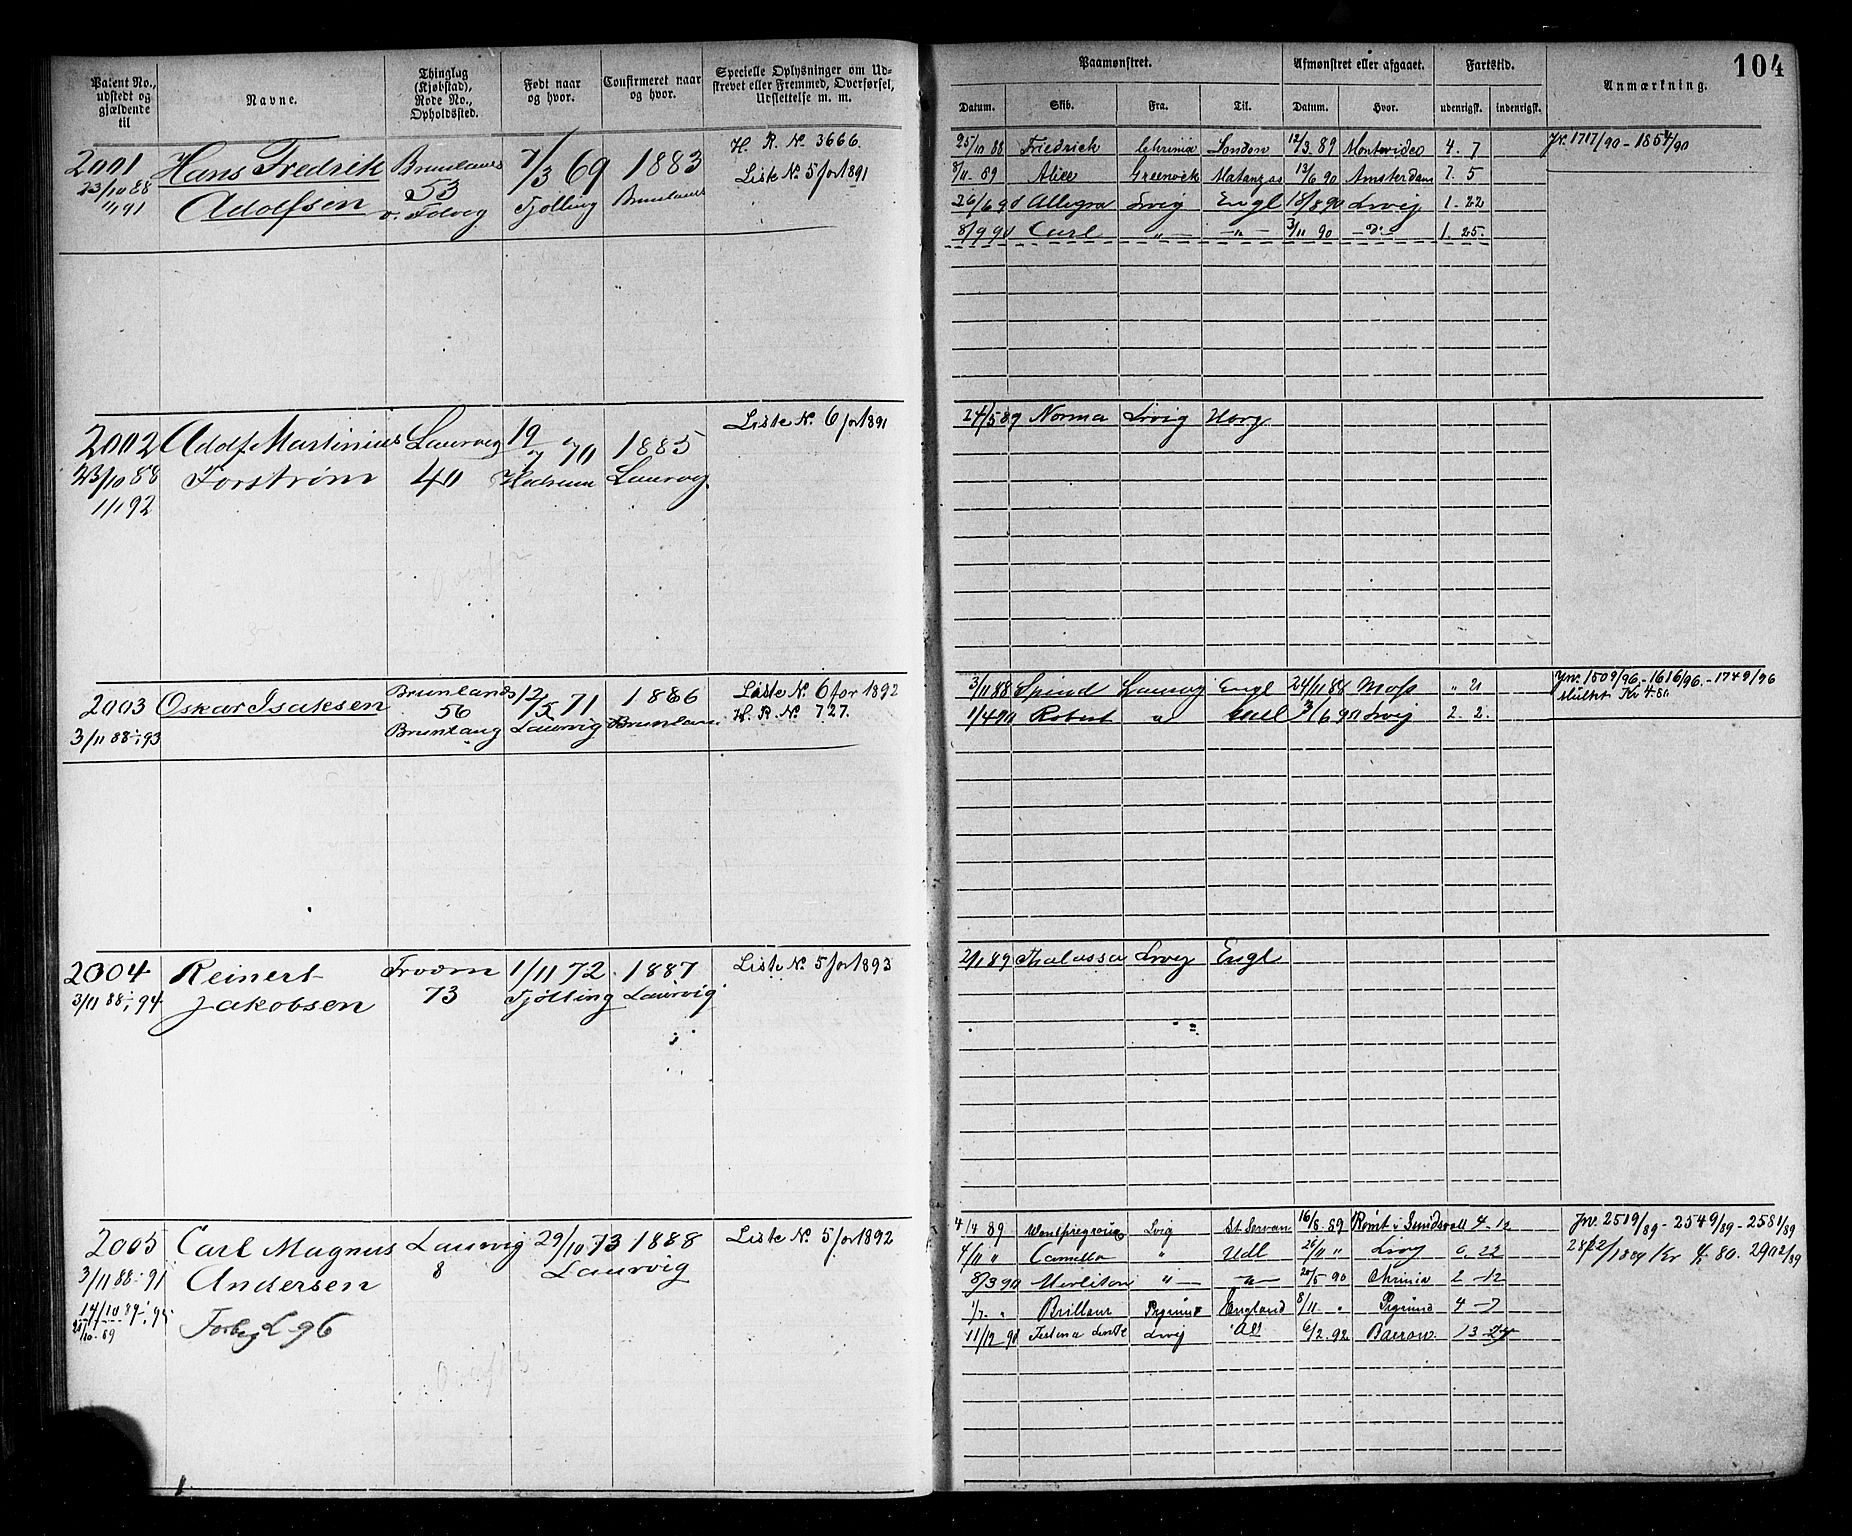 Patent No., udstedt og gjældende til
Navne.
Thinglag (Kjøbstad), Rode No., Opholdssted.
Født naar og hvor.
Confirmeret naar og hvor.
Specielle Oplysninger om Udstrevet eller Fremmed, Overførsel, Udslettelse m. m.
Paamønstret.
Afmønstret eller afgaaet.
Fartstid.
Anmærkning.
104
Datum. Skib. Fra. Til. Datum. Hvor. udenrigsk. indenrigsk.
2001 Hans Fredrik Brunlanes 7/3 69 1883 H. R. No. 3666.
23/10 88 Adolfsen 53 Tjølling Brunlanes Liste No. 5 for 1891
1/1 91
25/10 88 Friedrick Chrinia London 12/3 89 Montevideo 4. 7 Jr. 1717/90 - 1854/90
89 Alice Greenock Matanzas 13/6 90 Amsterdam 7. 5
26/6 90 Allegra Lrvig Engl 18/8 90 Lrvig 1. 22
8/9 90 Carl " " 3/11 90 do 1. 25.
2002 Adolf Martinius Laurvig 19/7 70 1885 Liste No. 6 for 1891
23/10 88 Forstrøm 40 Hedrum Laurvig
1/1 92
24/5 89 Norma Lrvig
2003 Oskar Isaksen Brunlanes 12/5 71 1886 Liste No. 6 for 1892
3/11 88 - 1/1 93 56 Laurvig Brunlanes H. R. No. 727.
3/11 88 Laurvig Engl 24/11 88 Moss " 21 Jnr. 1509/96. - 1616/96. - 1749/96
mulkt Kr 4.80
1/4 90 Robert " 3/6 90 Lrvig 2. 2.
2004 Reinert 1/11 72 1887 Liste No. 5 for 1893
3/11 88 - 1/1 94 Jakobsen 73 Tjølling Laurvig
2/1 89 Thalassa Lrvig Engl
2005 Carl Magnus Laurvig 29/10 73 1888 Liste No. 5 for 1892
3/11 88 - 91 Andersen 8 Laurvig
14/10 89 - 1/1 95 Forbig L 96
4/4 89 Lvig St Servan 16/8 89 Rømt i Sundsvall 4 - 12 Jnr. 2519/89 - 2549/89 - 2581/89
4/11 " Camilla " Udl 26/11 " Lrvig 0. 22
8/3 90 Merliton " " 20/5 90 Chrinia 2 - 12
1/7 " Brillant Prgrund England 8/11 " Prgrund 4 - 7
11/12 90 Lrvig 6/2 92 Barrow. 13 - 24